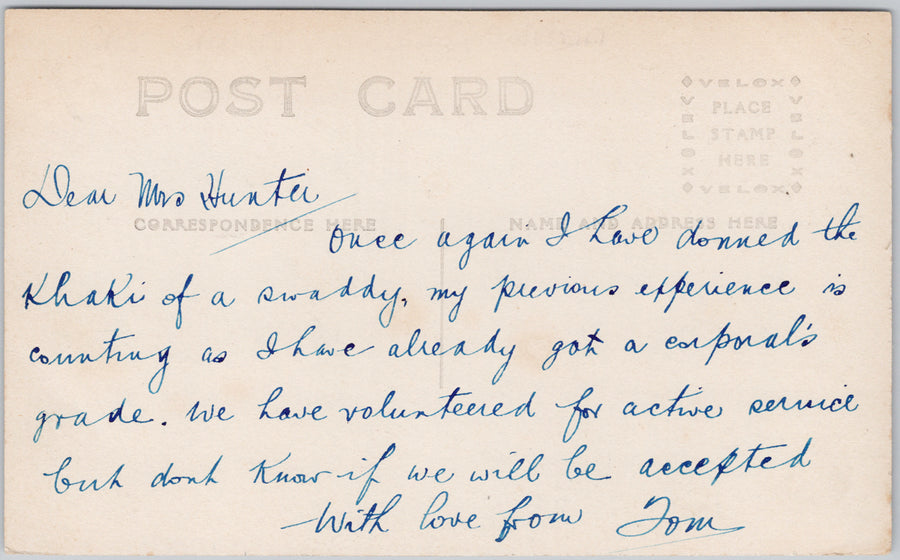 POST CARD
VELOX
VELOX
VELOX
PLACE
STAMP
HERE
VELOX
Dear Mrs Hunter
CORRESPONDENCE HERE
NAME AND ADDRESS HERE
Once again I have donned the
Khaki of a swaddy, my previous experience is
counting as I have already got a corporal's
grade. We have volunteered for active service
but dont know if we will be accepted
With love from Tom